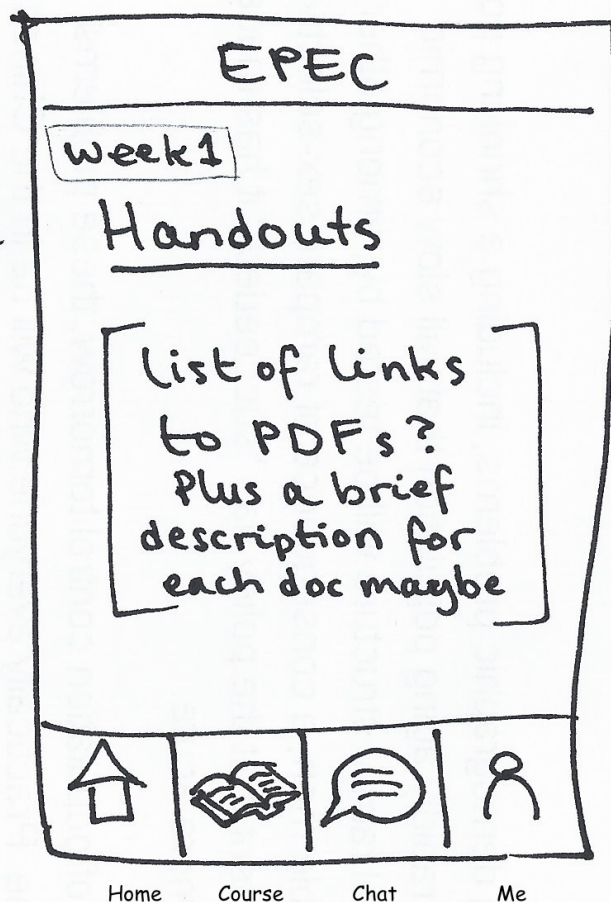 EPEC
week 1
Handouts
list of links
to PDFs?
Plus a brief
description for
each doc maybe
Home Course Chat Me